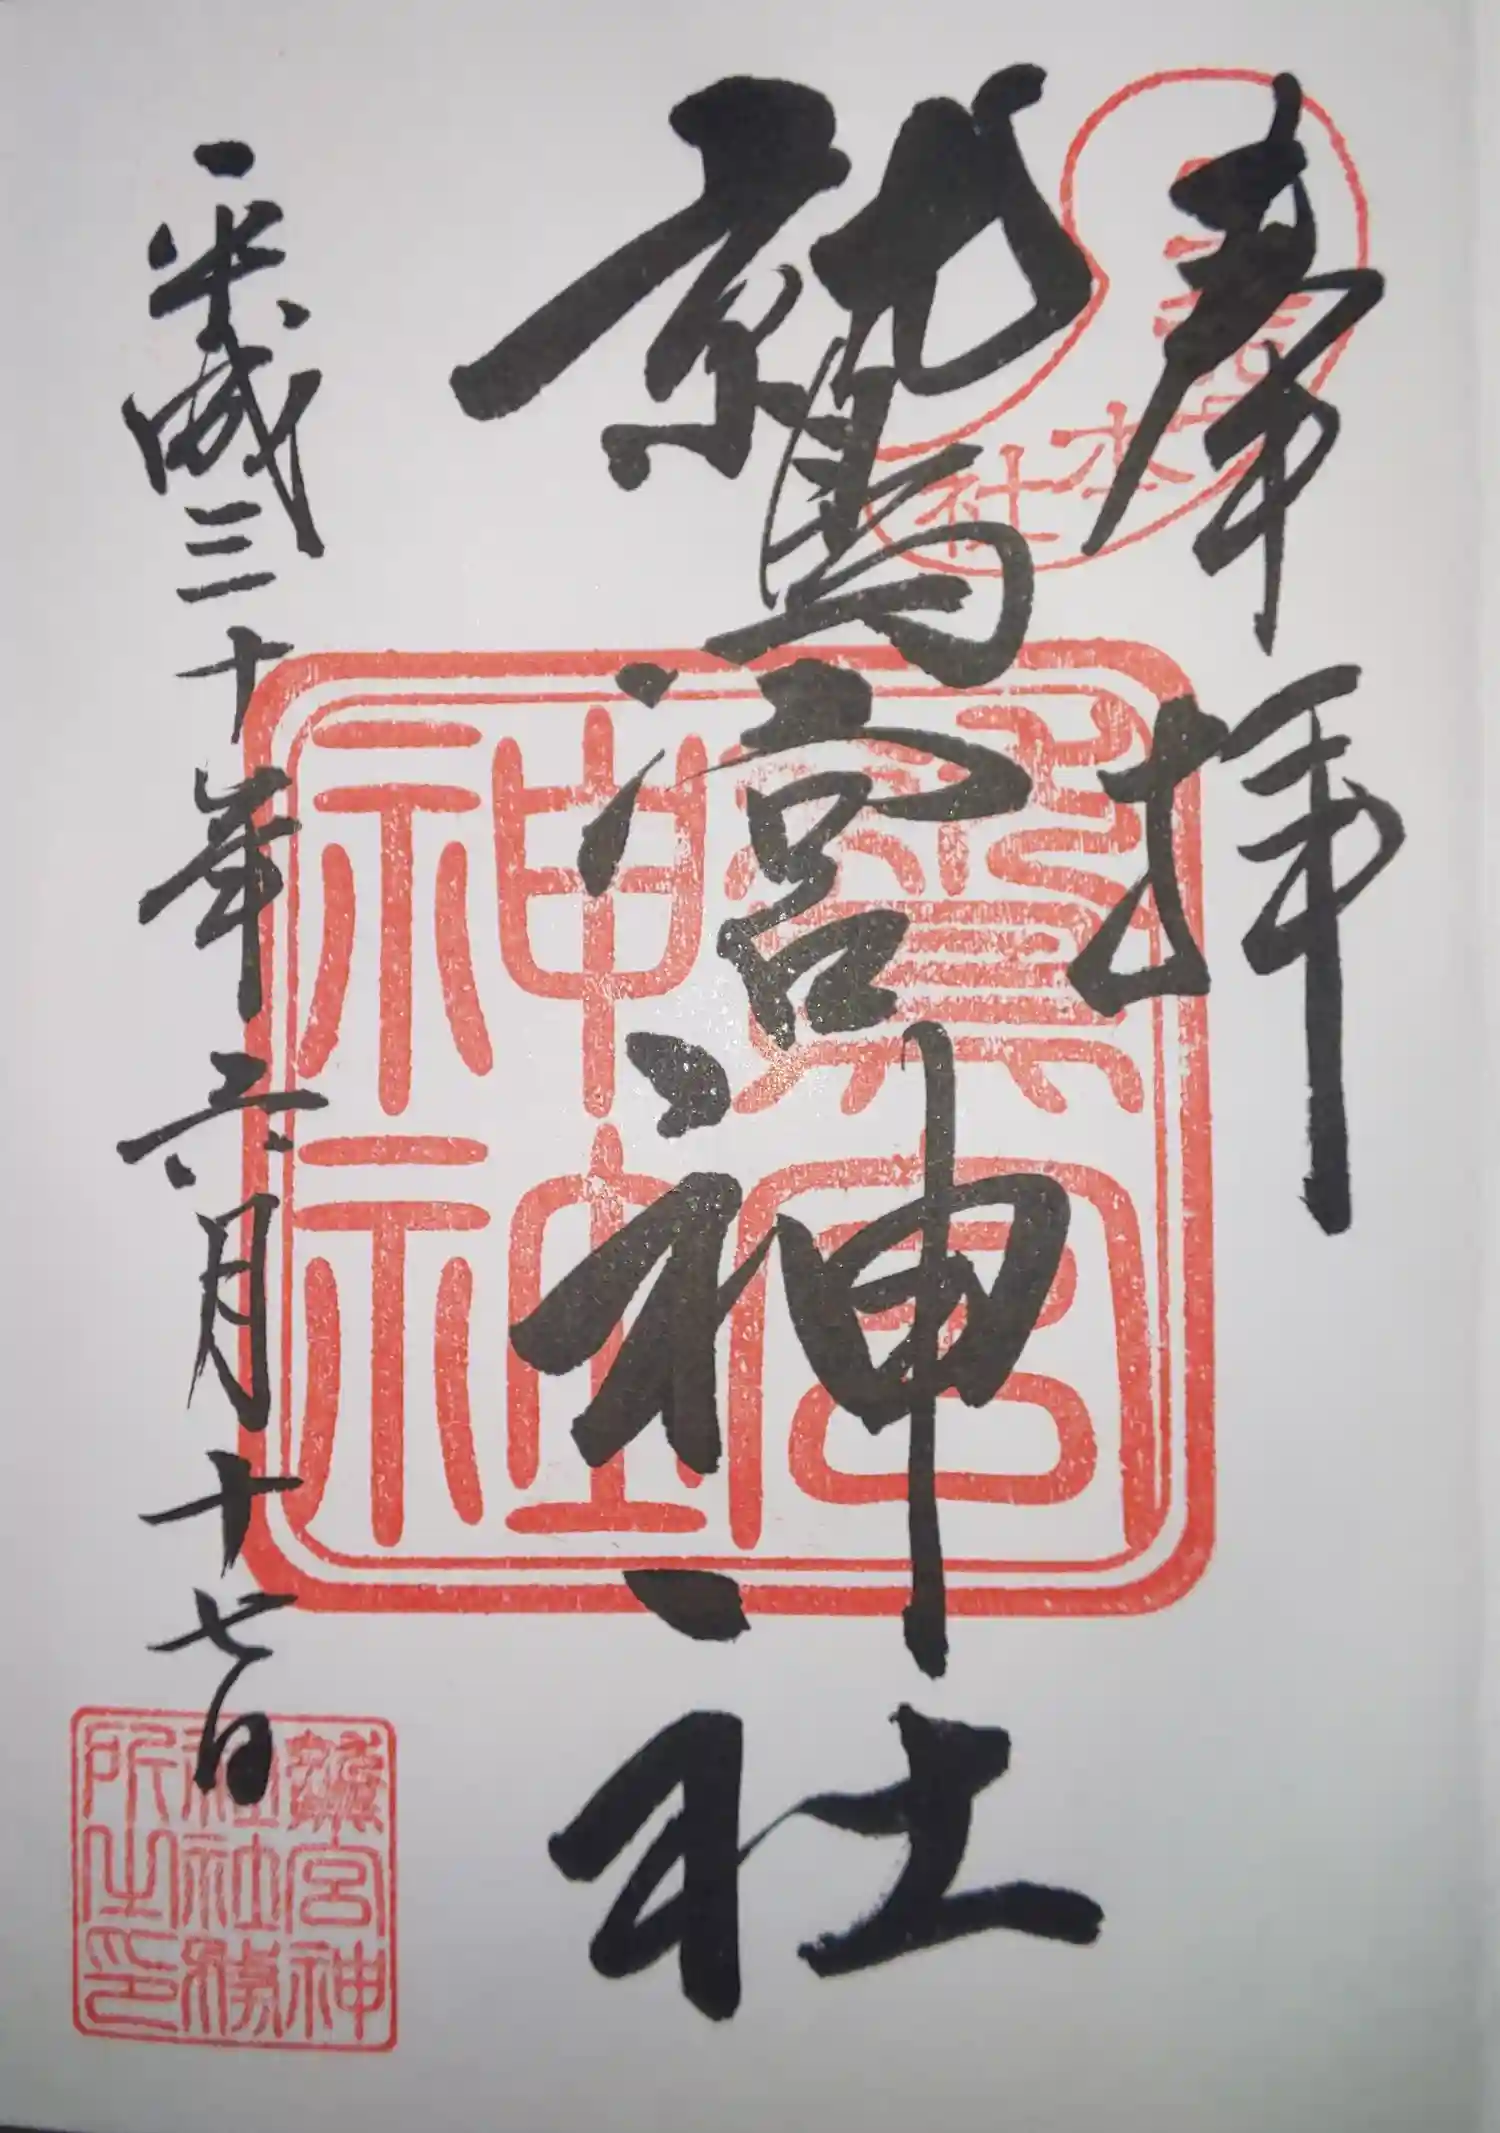 奉拝
鷲宮神社
平成三十年六月十七日
本社
鷲宮
神社
鷲宮神
社社務
所之印